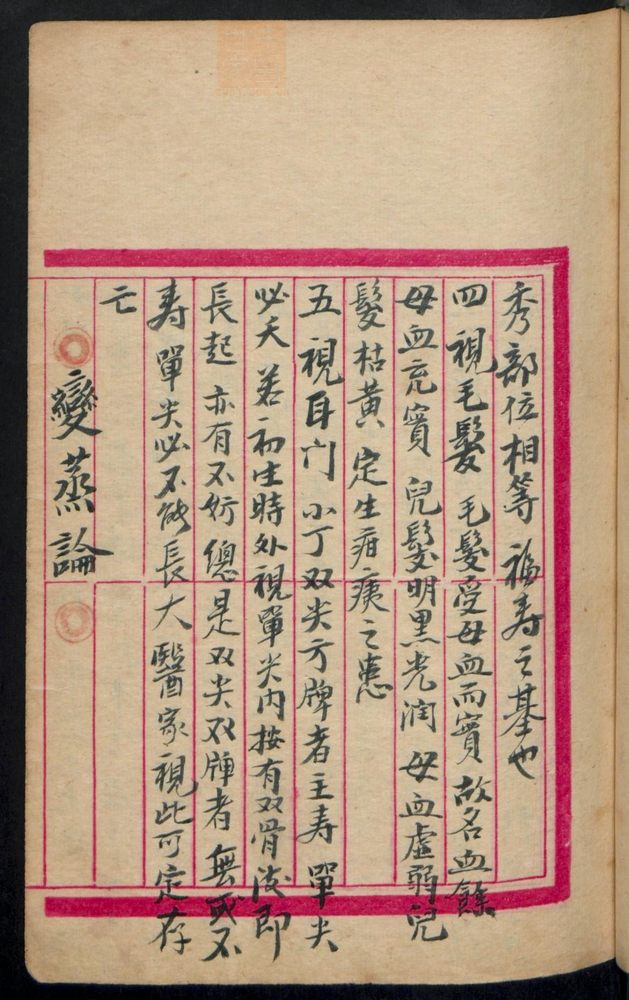 秀部位相等 福寿之基也
四 視毛髮 毛髮受母血而實 故名血餘
母血充實 兒髮明黑光潤 母血虛弱兒
髮枯黃 定生疳痍之患
五 視耳门 小丁双尖方牌者主寿 單尖
必夭 若初生時外視單尖内按有双骨後即
長起 亦有不妨 總是双尖双牌者 無或不
寿 單尖必不能長大 醫家視此可定存
亡
變蒸論